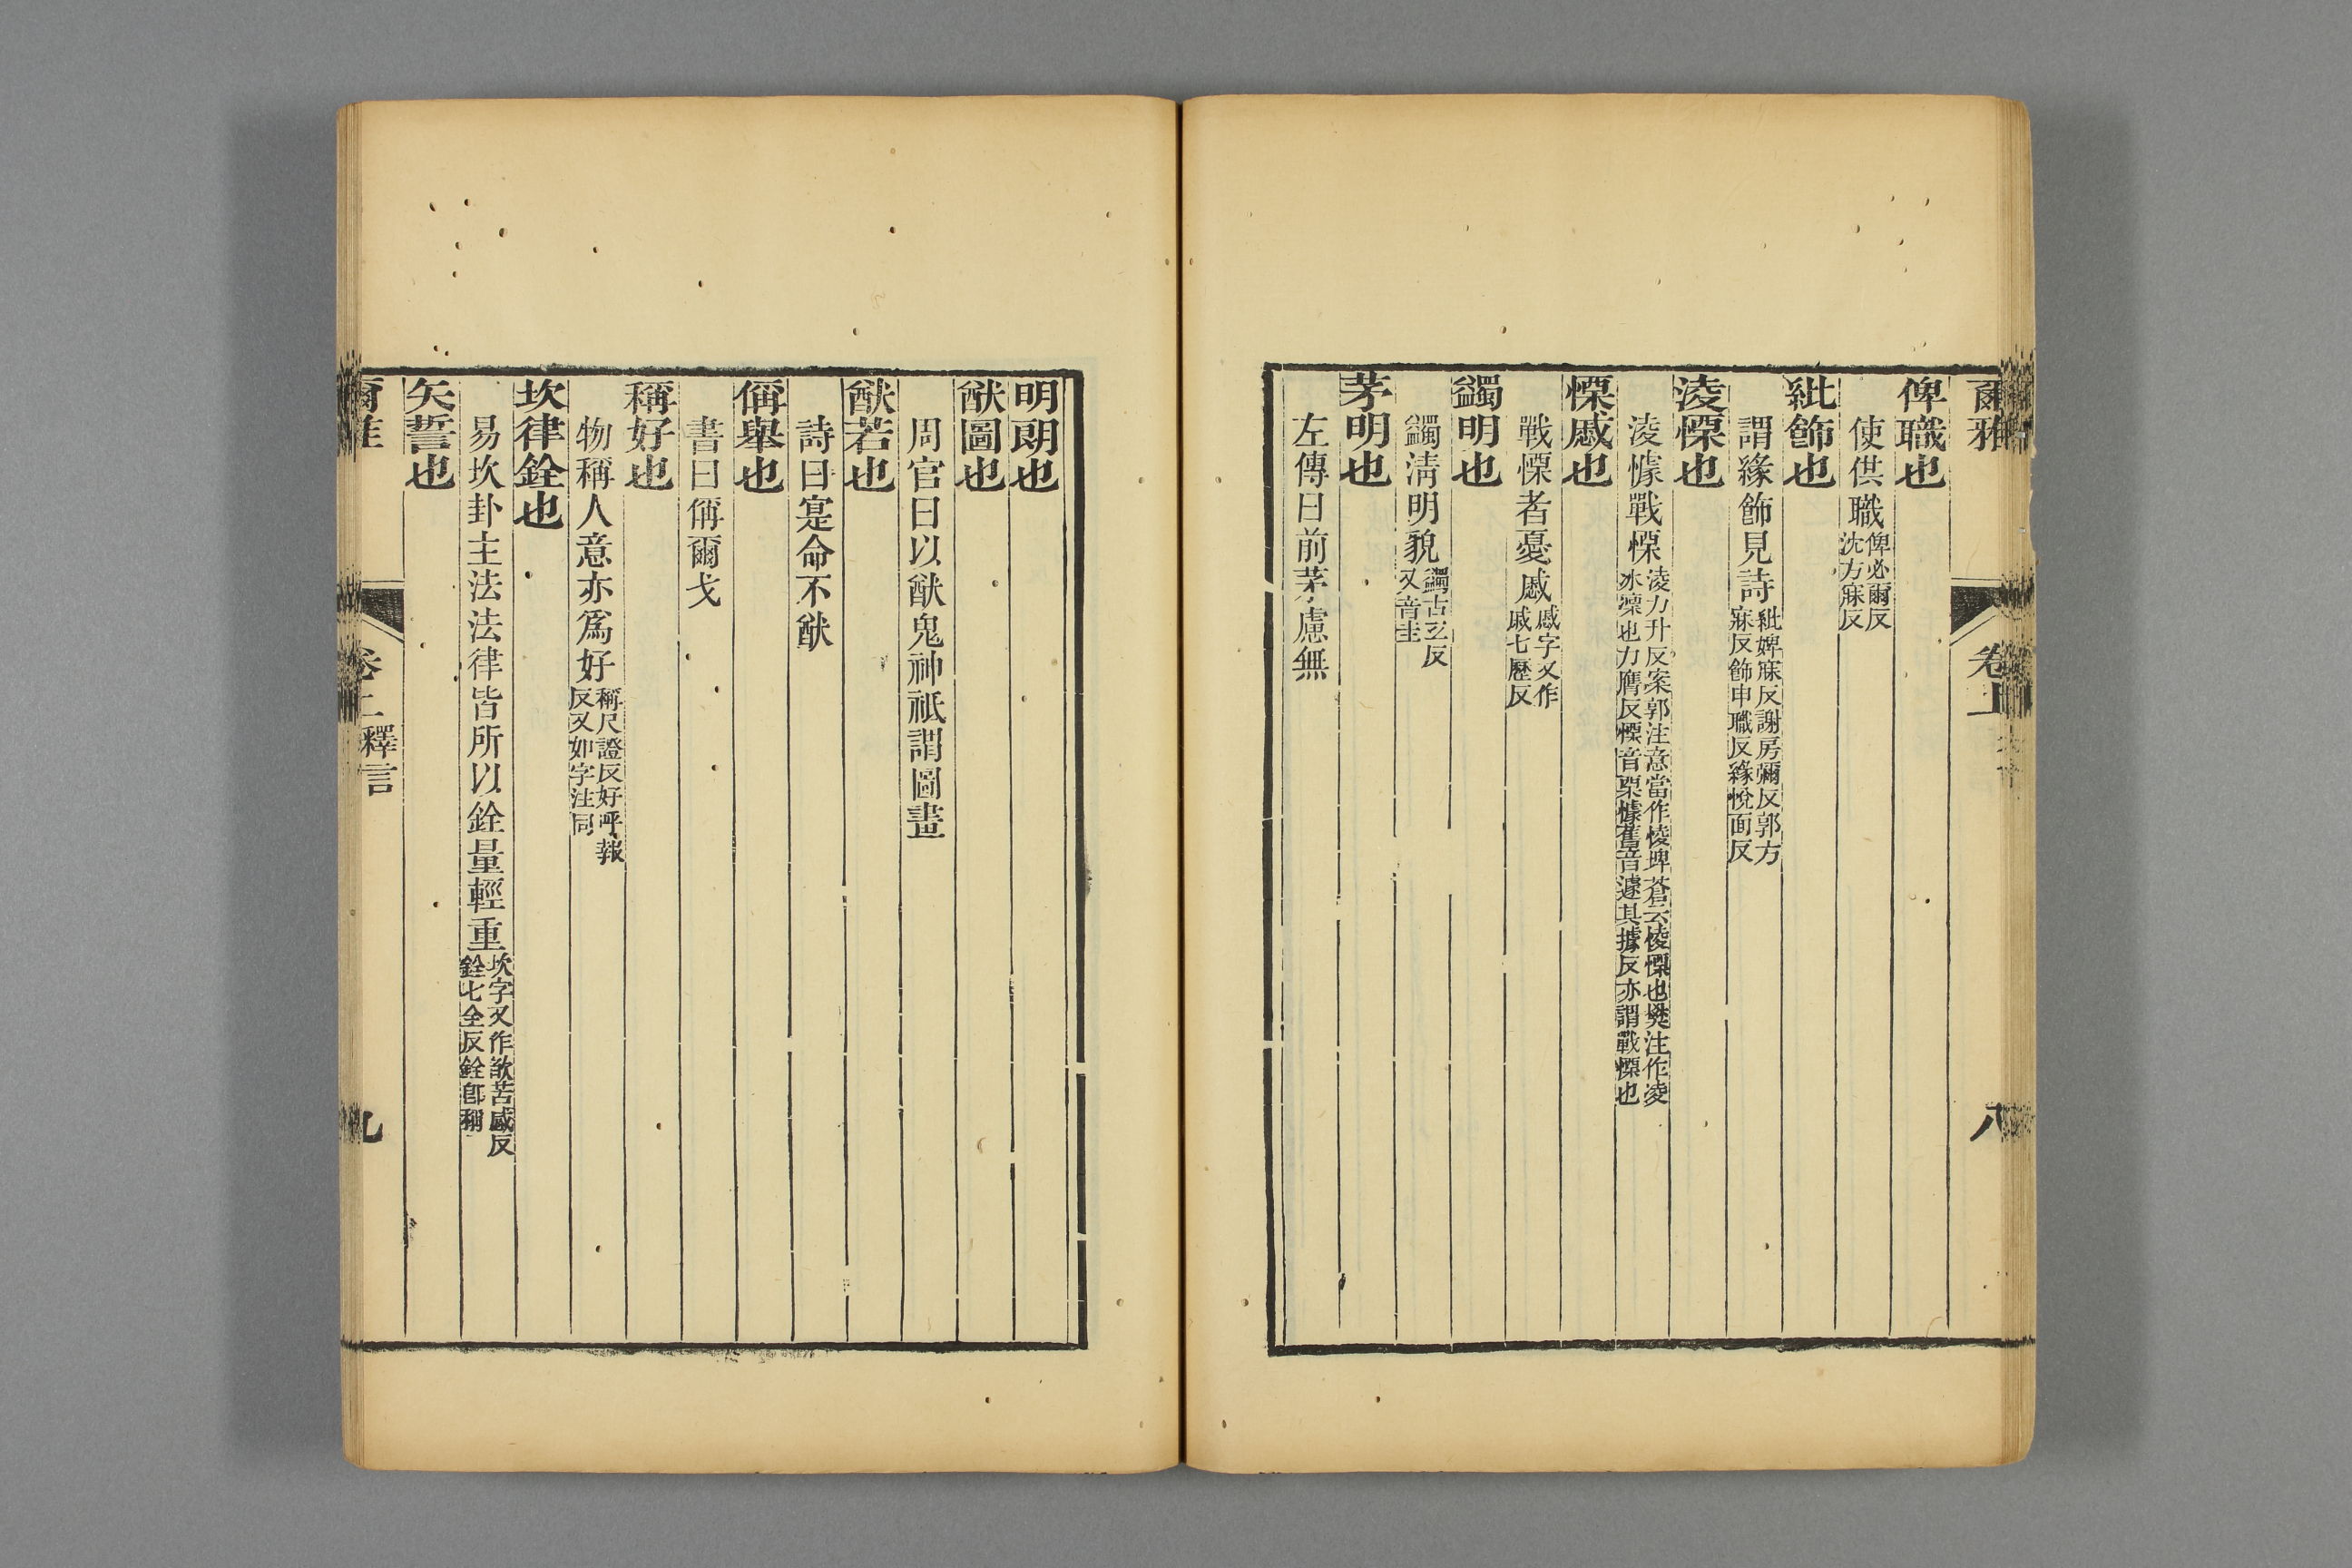 爾雅 卷上 八
俾職也
使供職俾必爾反沈方寐反
紕飾也
謂緣飾見詩紕婢寐反謝房彌反郭方寐反飾申職反緣悅面反
淩慄也
淩懅戰慄淩力升反案郭注意當作㥄埤蒼云㥄慄也樊注作凌冰凜也力膺反慄音栗懅舊音遽其據反亦謂戰慄也
慄慼也
戰慄者憂慼慼字又作戚七歷反
蠲明也
蠲清明貌蠲古玄反又音圭
茅明也
左傳曰前茅慮無
明朗也
猷圖也
周官曰以猷鬼神祇謂圖畫
猷若也
詩曰寔命不猷
偁舉也
書曰偁爾戈
稱好也
物稱人意亦爲好稱尺證反好呼報反又如字注同
坎律銓也
易坎卦主法法律皆所以銓量輕重坎字又作欿苦感反銓七全反銓卽稱
矢誓也
爾雅 卷上 釋言 九